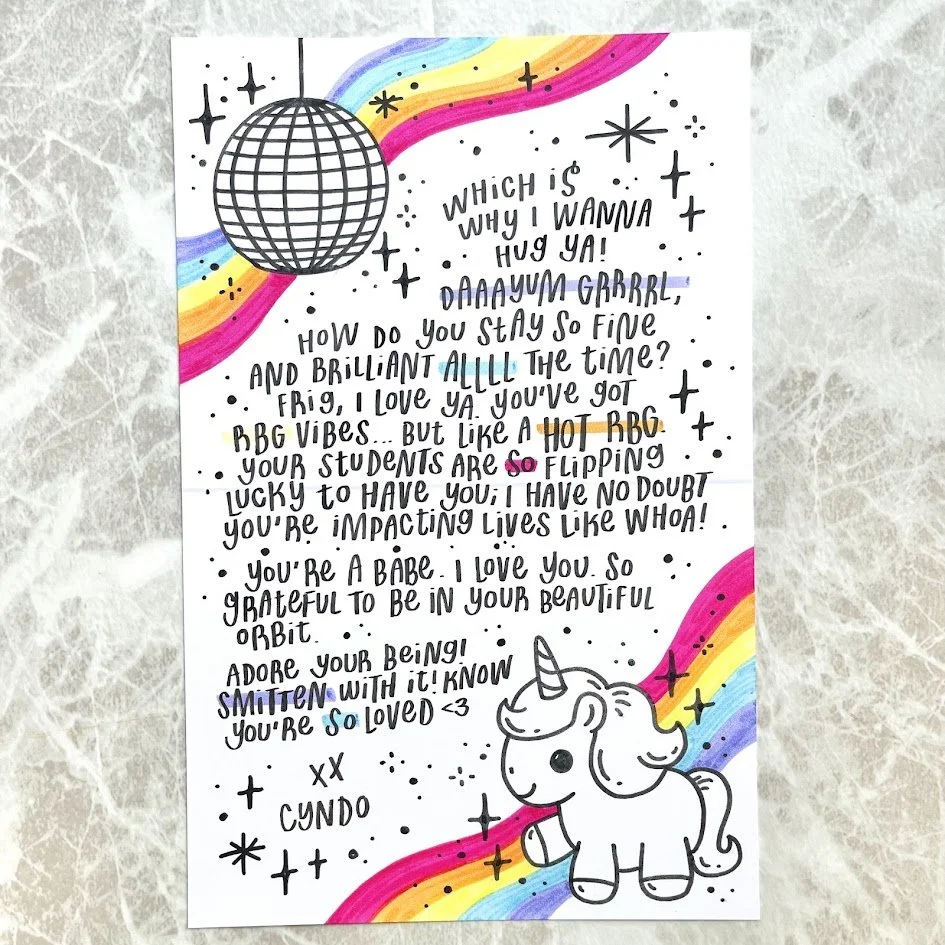 WHiCH iS
WHY I WANNA
HUG YA!
DAAAYUM GRRRRL,
HOW DO YOU STAY SO FiNE
AND BRiLLiANT ALLLL THE TiME?
FRiG, I LOVE YA. YOU'VE GOT
RBG ViBES... BUT LiKE A HOT RBG.
YOUR STUDENTS ARE SO FLiPPiNG
LUCKY TO HAVE YOU; I HAVE NO DOUBT
YOU'RE iMPACTiNG LiVES LiKE WHOA!
YOU'RE A BABE. I LOVE YOU. SO
GRATEFUL TO BE iN YOUR BEAUTiFUL
ORBiT.
ADORE YOUR BEiNG!
SMiTTEN WiTH iT! KNOW
YOU'RE SO LOVED <3
XX
CYNDO